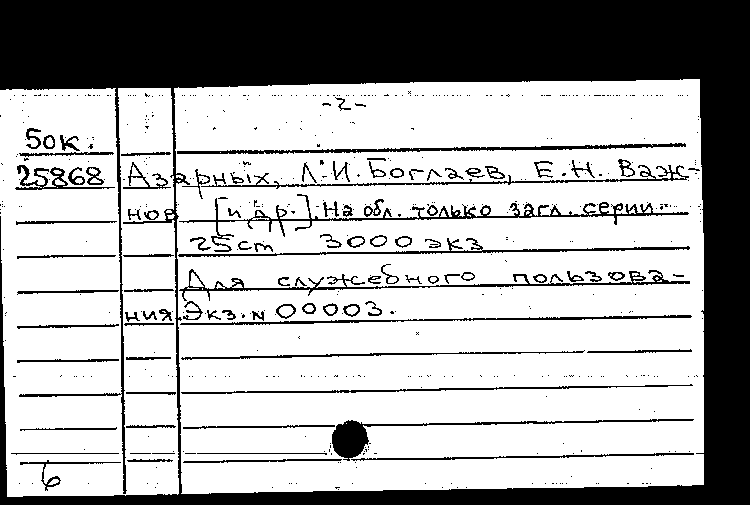 -2-
50к.
25868 Азарных, Л.И. Боглаев, Е.Н. Важ-
нов [и др.]. На обл. только загл. серии.-
25cm 3000 экз
Для служебного пользова-
ния. Экз. N 00003.
6